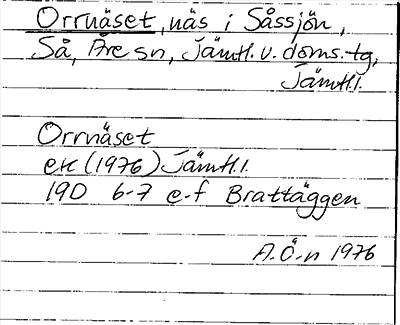 Orrnäset, näs i Såssjön,
Så, Åre sn, Jämtl. v. doms.-tg,
Jämtl.l.
Orrnäset
ek (1976) Jämtl.l.
19D 6-7 e-f Brattäggen
A.Ö-n 1976